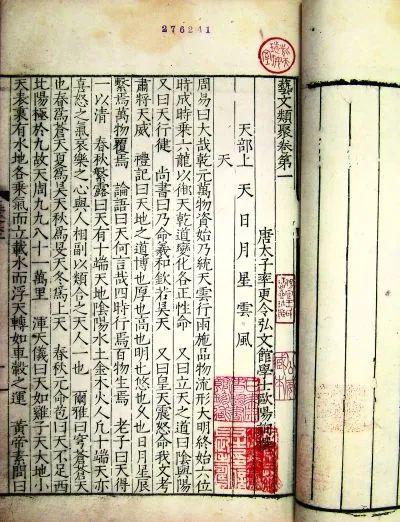 276241
藝文類聚卷第一
唐太子率更令弘文館學士歐陽詢
天部上 天 日 月 星 雲 風
天
周易曰大哉乾元萬物資始乃統天雲行雨施品物流形大明終始六位
時成時乘六龍以御天乾道變化各正性命 又曰立天之道曰陰與陽
又曰天行健 尚書曰乃命羲和欽若昊天 又曰皇天震怒命我文考
肅將天威 禮記曰天地之道博也厚也高也明也悠也久也日月星辰
繫焉萬物覆焉 論語曰天何言哉四時行焉百物生焉 老子曰天得
一以清 春秋繁露曰天有十端天地陰陽水土金木火人凡十端天亦
喜怒之氣哀樂之心與人相副以類合之天人一也 爾雅曰穹蒼蒼天
也春爲蒼天夏爲昊天秋爲旻天冬爲上天 春秋元命苞曰天不足西
北陽極於九故天周九九八十一萬里 渾天儀曰天如雞子天大地小
天表裏有水地各乘氣而立載水而浮天轉如車轂之運 黃帝素問曰